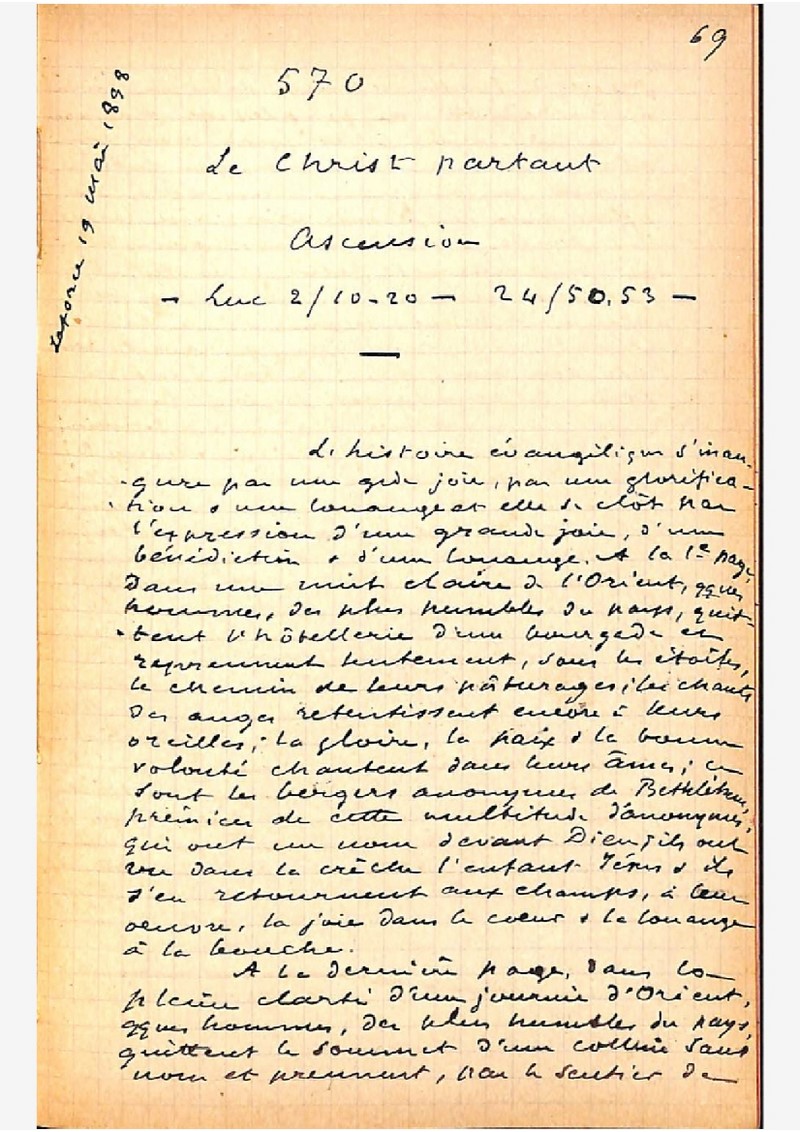 69
570
Laforce 19 mai 1898
Le Christ partant
Ascension
- Luc 2/10-20 - 24/50.53 -
L'histoire évangélique s'inau-
gure par une gde joie, par une glorifica-
tion & une louange et elle se clôt par
l'expression d'une grande joie, d'une
bénédiction & d'une louange. A la 1e page,
dans une nuit claire de l'Orient, qques
hommes, des plus humbles du pays, quit-
tent l'hôtellerie d'une bourgade et
reprennent lentement, sous les étoiles,
le chemin de leurs pâturages; les chants
des anges retentissent encore à leurs
oreilles; la gloire, la paix & la bonne
volonté chantent dans leurs âmes; ce
sont les bergers anonymes de Bethléhem,
prémices de cette multitude d'anonymes,
qui ont un nom devant Dieu; ils ont
vu dans la crèche l'enfant Jésus & ils
s'en retournent aux champs, à leur
oeuvre, la joie dans le coeur & la louange
à la bouche.
A la dernière page, dans la
pleine clarté d'une journée d'Orient,
qques hommes, des plus humbles du pays,
quittent le sommet d'une colline sans
nom et prennent, par le sentier de